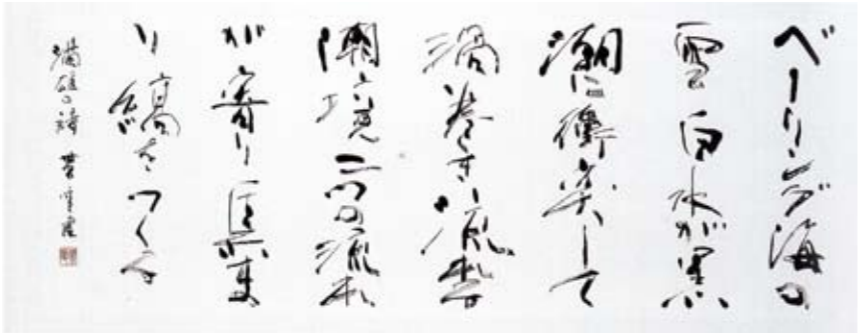 ベーリング海の
雪白水が黒
潮に衝突して
渦巻き流れる
潮境二つの流れ
が寄り集ま
り縞をつくる
の詩